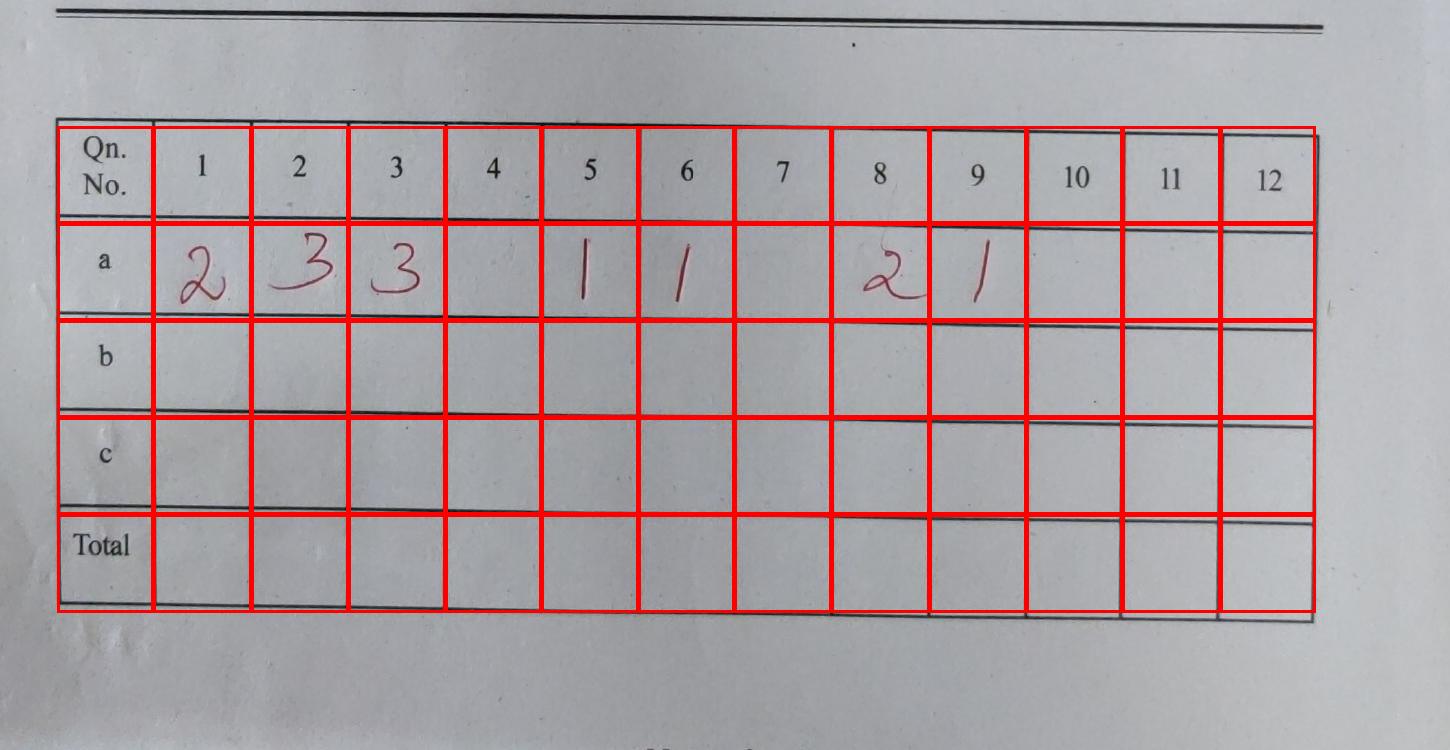 Qn. No. 1 2 3 4 5 6 7 8 9 10 11 12
a 2 3 3 1 1 2 1
b
c
Total